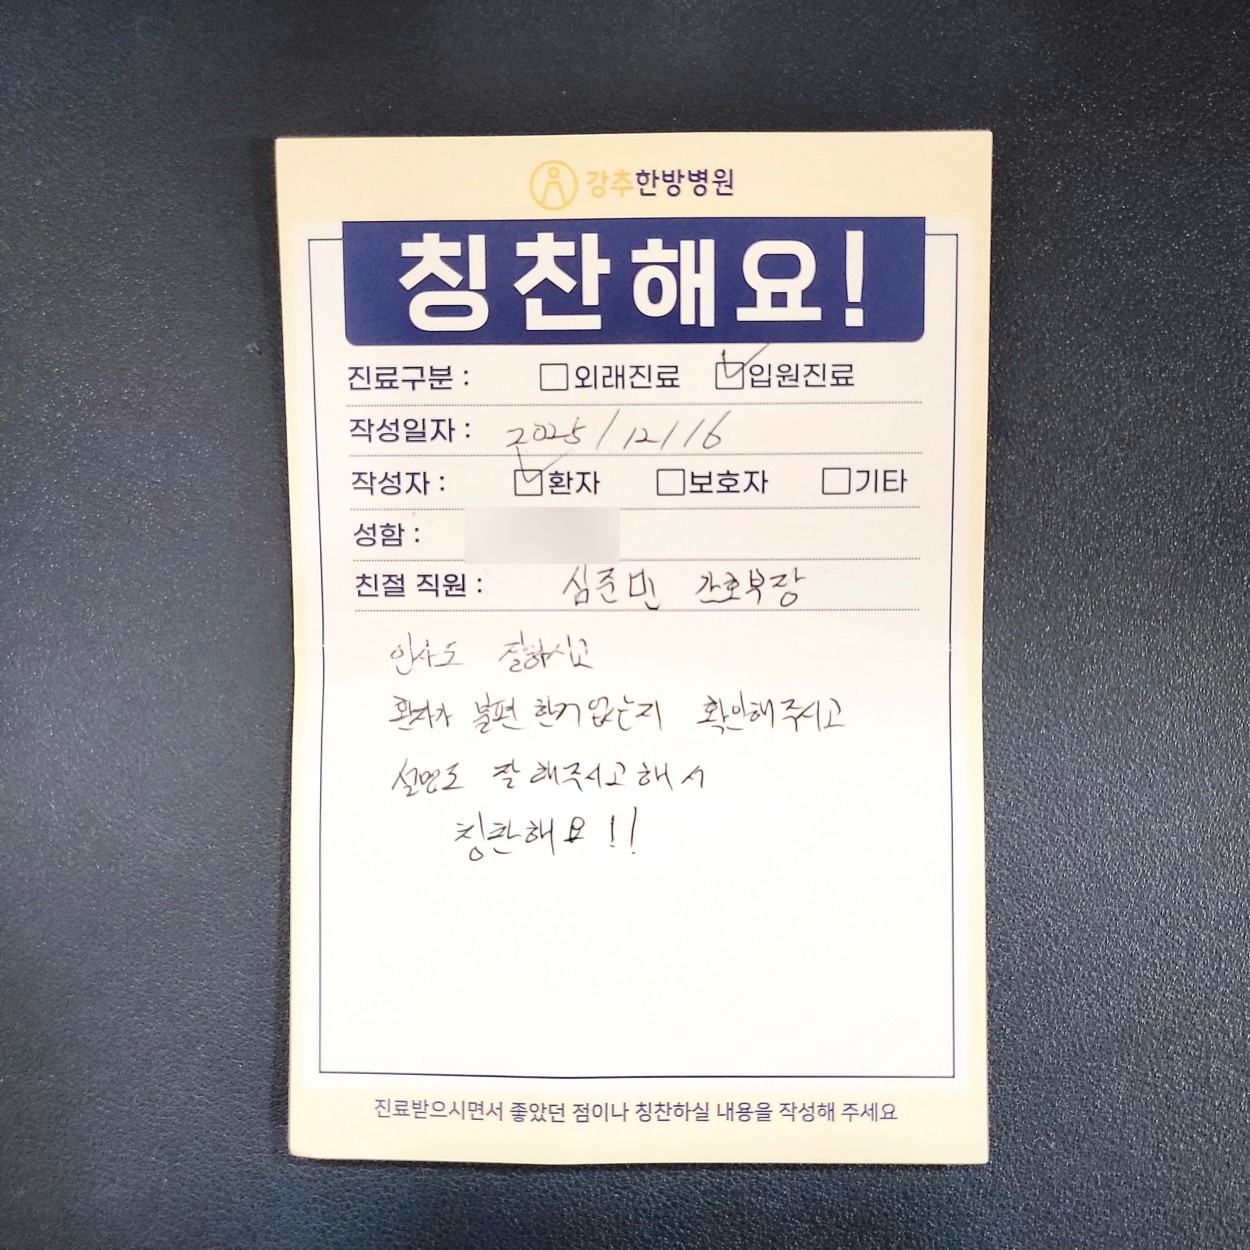 강추한방병원
칭찬해요!
진료구분 : □외래진료 ☑입원진료
작성일자 : 2025/12/16
작성자 : ☑환자 □보호자 □기타
성함 :
친절 직원 : 심준민 간호부장
인사도 잘하시고
환자가 불편한거 없는지 확인해주시고
설명도 잘 해주시고 해서
칭찬해요!!
진료받으시면서 좋았던 점이나 칭찬하실 내용을 작성해 주세요